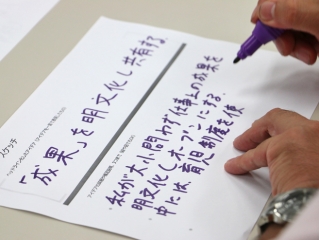 スケッチ
「成果」を明文化し共有する。
私が大小問わず仕事上の成果を
明文化しオープンにする。
中には、育児制度を使